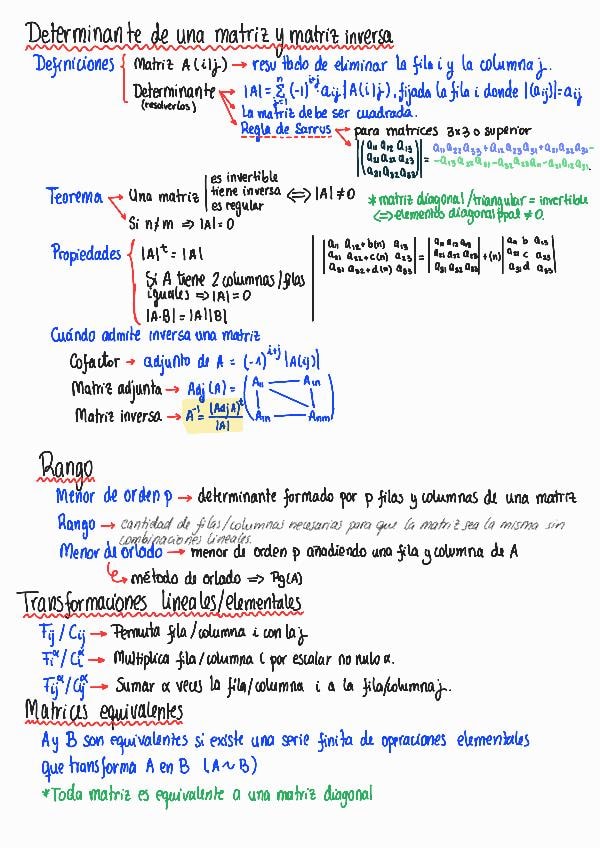 Determinante de una matriz y matriz inversa
Definiciones { Matriz A(i|j) → resultado de eliminar la fila i y la columna j.
Determinante → |A| = Σⁿⱼ₌₁ (-1)^{i+j} aij |A(i|j)|, fijada la fila i donde |(aij)|=aij
(resolverlos) → La matriz debe ser cuadrada.
Regla de Sarrus → para matrices 3x3 o superior
|(a11 a12 a13 a21 a22 a23 a31 a32 a33)| = a11 a22 a33 + a12 a23 a31 +
Teorema → Una matriz | es invertible
tiene inversa ⟺ |A| ≠ 0
es regular
* matriz diagonal/triangular = invertible
⟺ elementos diagonal ppal ≠ 0.
Si n≠m ⇒ |A|=0
Propiedades { |A|ᵗ = |A|
Si A tiene 2 columnas/filas
iguales ⇒ |A|=0
|A·B| = |A||B|
|a11 a12+b(n) a13 a21 a22+c(n) a23 a31 a32+d(n) a33| =
Cuándo admite inversa una matriz
Cofactor → adjunto de A = (-1)^{i+j} |A(ij)|
Matriz adjunta → Adj(A) = (A11 — A1n A1n — Anm)
Matriz inversa → A⁻¹ = (Adj A)ᵗ / |A|
Rango
Menor de orden p → determinante formado por p filas y columnas de una matriz
Rango → cantidad de filas/columnas necesarias para que la matriz sea la misma sin
combinaciones lineales.
Menor de orlado → menor de orden p añadiendo una fila y columna de A
↳ método de orlado ⇒ Rg(A)
Transformaciones lineales/elementales
Fij / Cij → Permuta fila/columna i con la j
Fi^α / Ci^α → Multiplica fila/columna i por escalar no nulo α.
Fij^α / Cij^α → Sumar α veces la fila/columna i a la fila/columna j.
Matrices equivalentes
A y B son equivalentes si existe una serie finita de operaciones elementales
que transforma A en B (A~B)
*Toda matriz es equivalente a una matriz diagonal